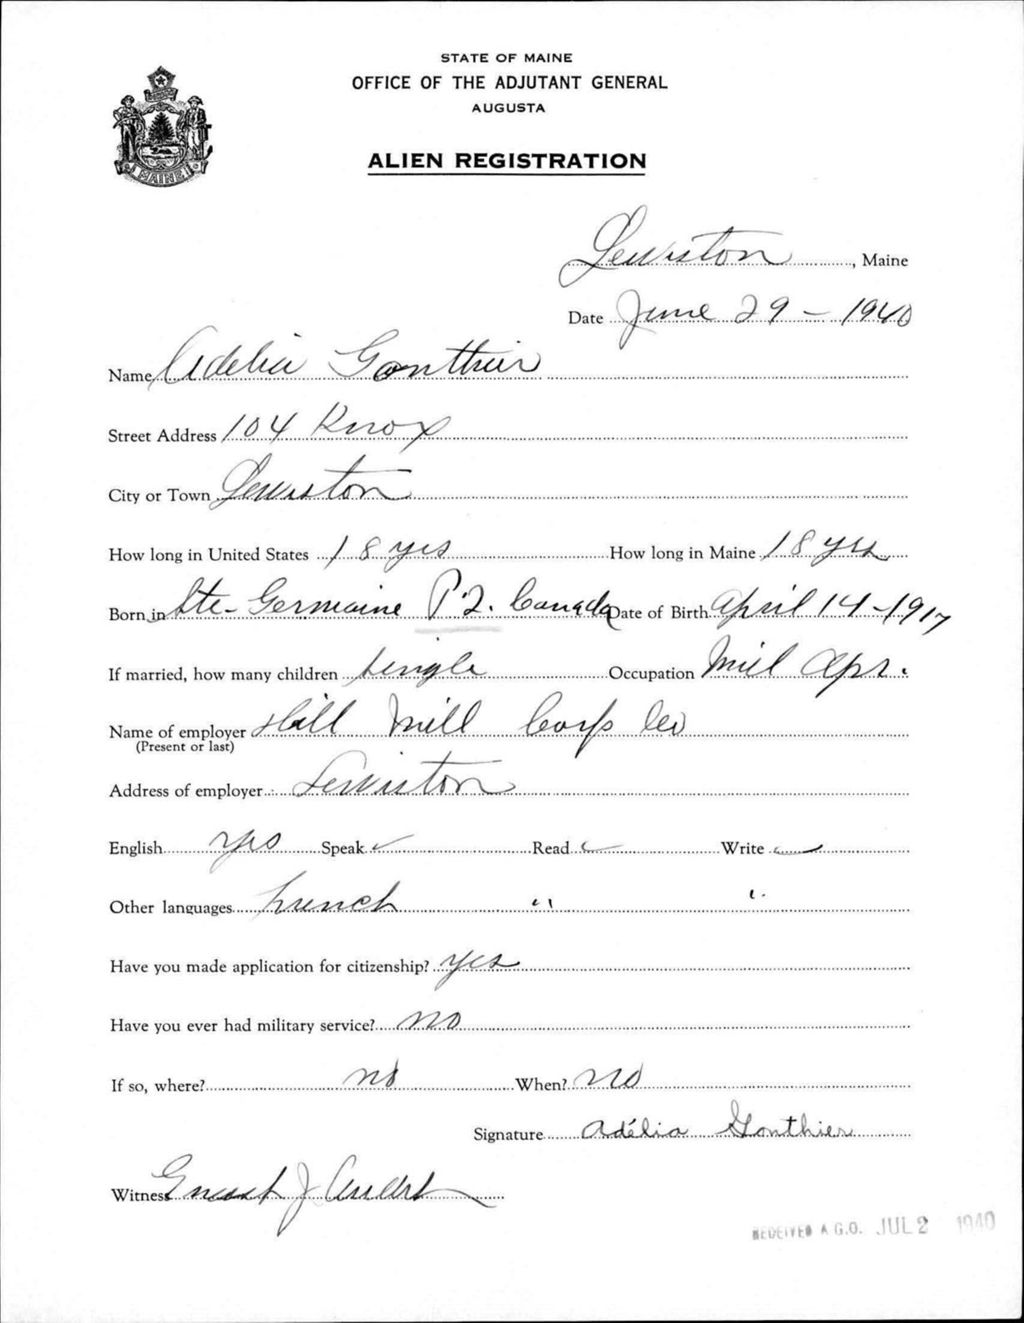 STATE OF MAINE
OFFICE OF THE ADJUTANT GENERAL
AUGUSTA
ALIEN REGISTRATION
MAINE
Lewiston, Maine
Date June 29 - 1940
Name Adelia Gonthier
Street Address 104 Knox
City or Town Lewiston
How long in United States 18 yrs How long in Maine 18 yrs
Born in Ste-Germaine P.Q. Canada Date of Birth April 14-1917
If married, how many children Single Occupation Mill Opr.
Name of employer Hill Mill Corp
(Present or last)
Address of employer Lewiston
English yes Speak ✓ Read ✓ Write ✓
Other languages French " "
Have you made application for citizenship? yes
Have you ever had military service? no
If so, where? no When? no
Signature Adélia Gonthier
Witness J
RECEIVED A.G.O. JUL 2 1940